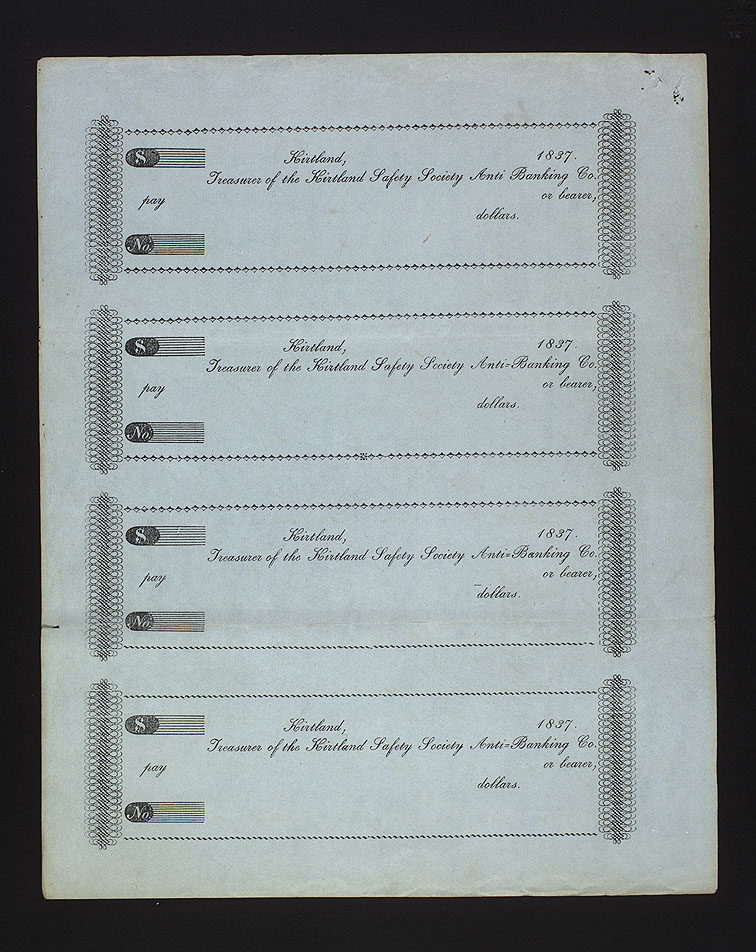 $ Kirtland, 1837.
Treasurer of the Kirtland Safety Society Anti Banking Co.
pay or bearer,
dollars.
No
$ Kirtland, 1837.
Treasurer of the Kirtland Safety Society Anti=Banking Co.
pay or bearer,
dollars.
No
$ Kirtland, 1837.
Treasurer of the Kirtland Safety Society Anti=Banking Co.
pay or bearer,
dollars.
No
$ Kirtland, 1837.
Treasurer of the Kirtland Safety Society Anti=Banking Co.
pay or bearer,
dollars.
No